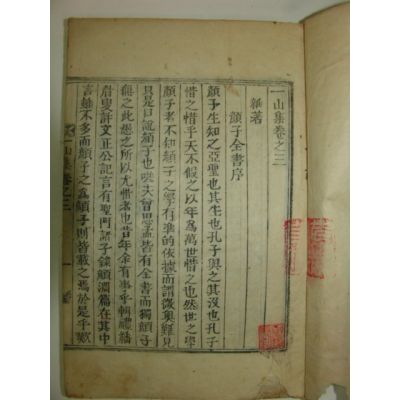 一山集卷之三
雜著
顔子全書序
顔子生知之亞聖也其生也孔子與之其沒也孔子
惜之惜乎天不假之以年爲萬世惜之也然世之學
顔子者不知顔子之學有準的依據而謂微奧難見
只是口說顔子也哄夫曾思孟皆有全書而獨顔子
無之此想之所以尤惜者也昔年余有事乎輯禮繙
眉叟許文正公記言有聖門諸子錄顔淵篇在其中
言雖不多而顔子之爲顔子則皆載之焉於是乎歎
一山集卷之三